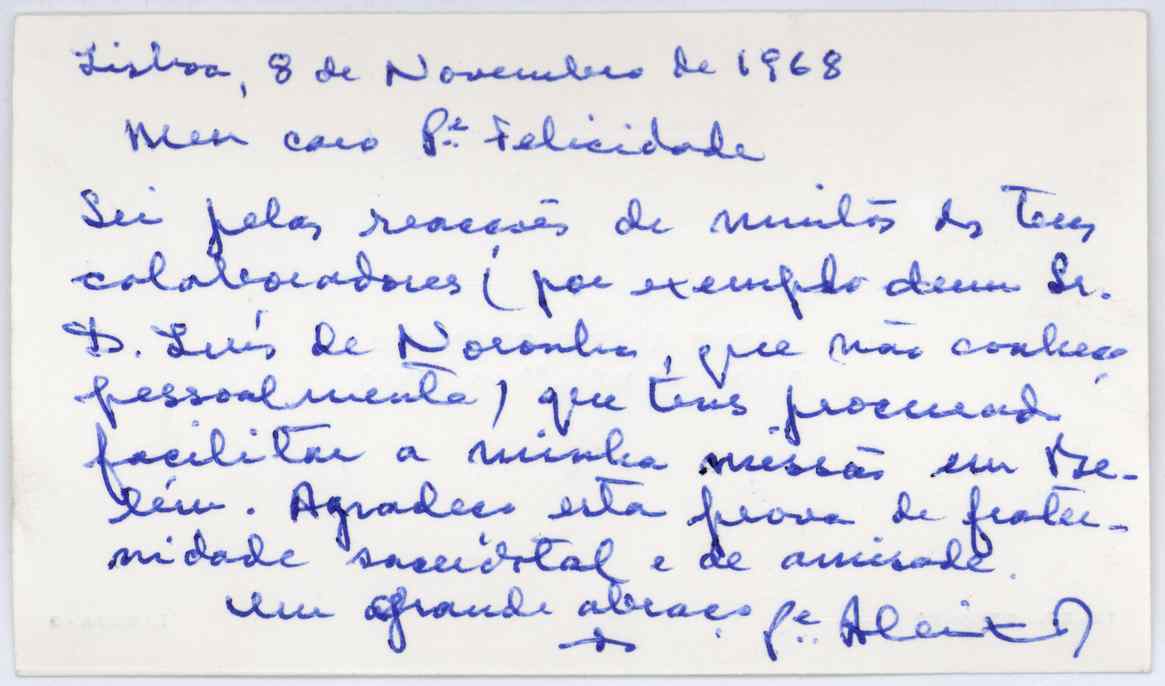 Lisboa, 8 de Novembro de 1968
Meu caro P.e Felicidade
Sei pelas reacções de muitos dos teus
colaboradores (por exemplo dum Sr.
D. Luís de Noronha, que não conheço
pessoalmente) que tens procurado
facilitar a minha missão em Be-
lém. Agradeço esta prova de frater-
nidade sacerdotal e de amisade.
Um grande abraço
do P.e Aleixo